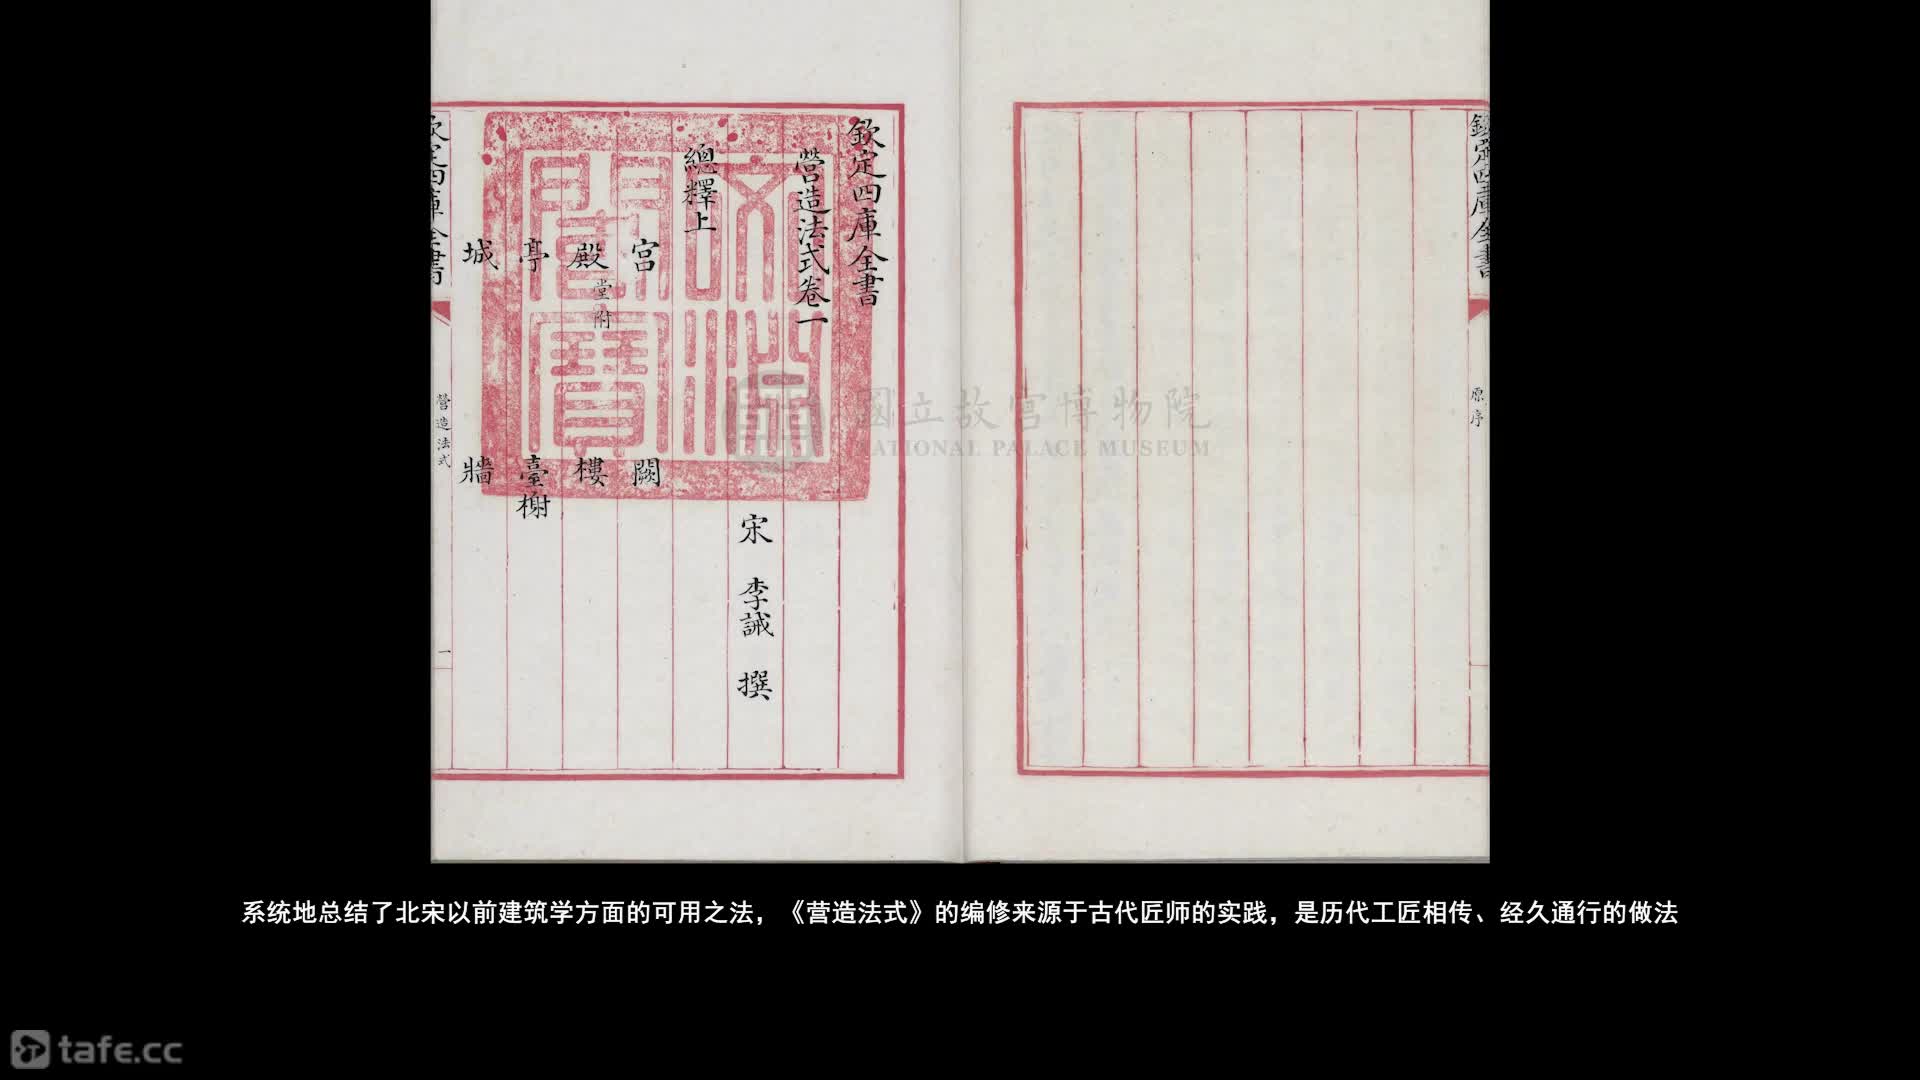 欽定四庫全書
營造法式卷一
宋 李誡 撰
總釋上
宮 闕
殿堂附 樓
亭 臺榭
城 牆
欽定四庫全書
營造法式
一
欽定四庫全書
原序
文淵閣寶
國立故宮博物院
NATIONAL PALACE MUSEUM
系统地总结了北宋以前建筑学方面的可用之法，《营造法式》的编修来源于古代匠师的实践，是历代工匠相传、经久通行的做法
tafe.cc